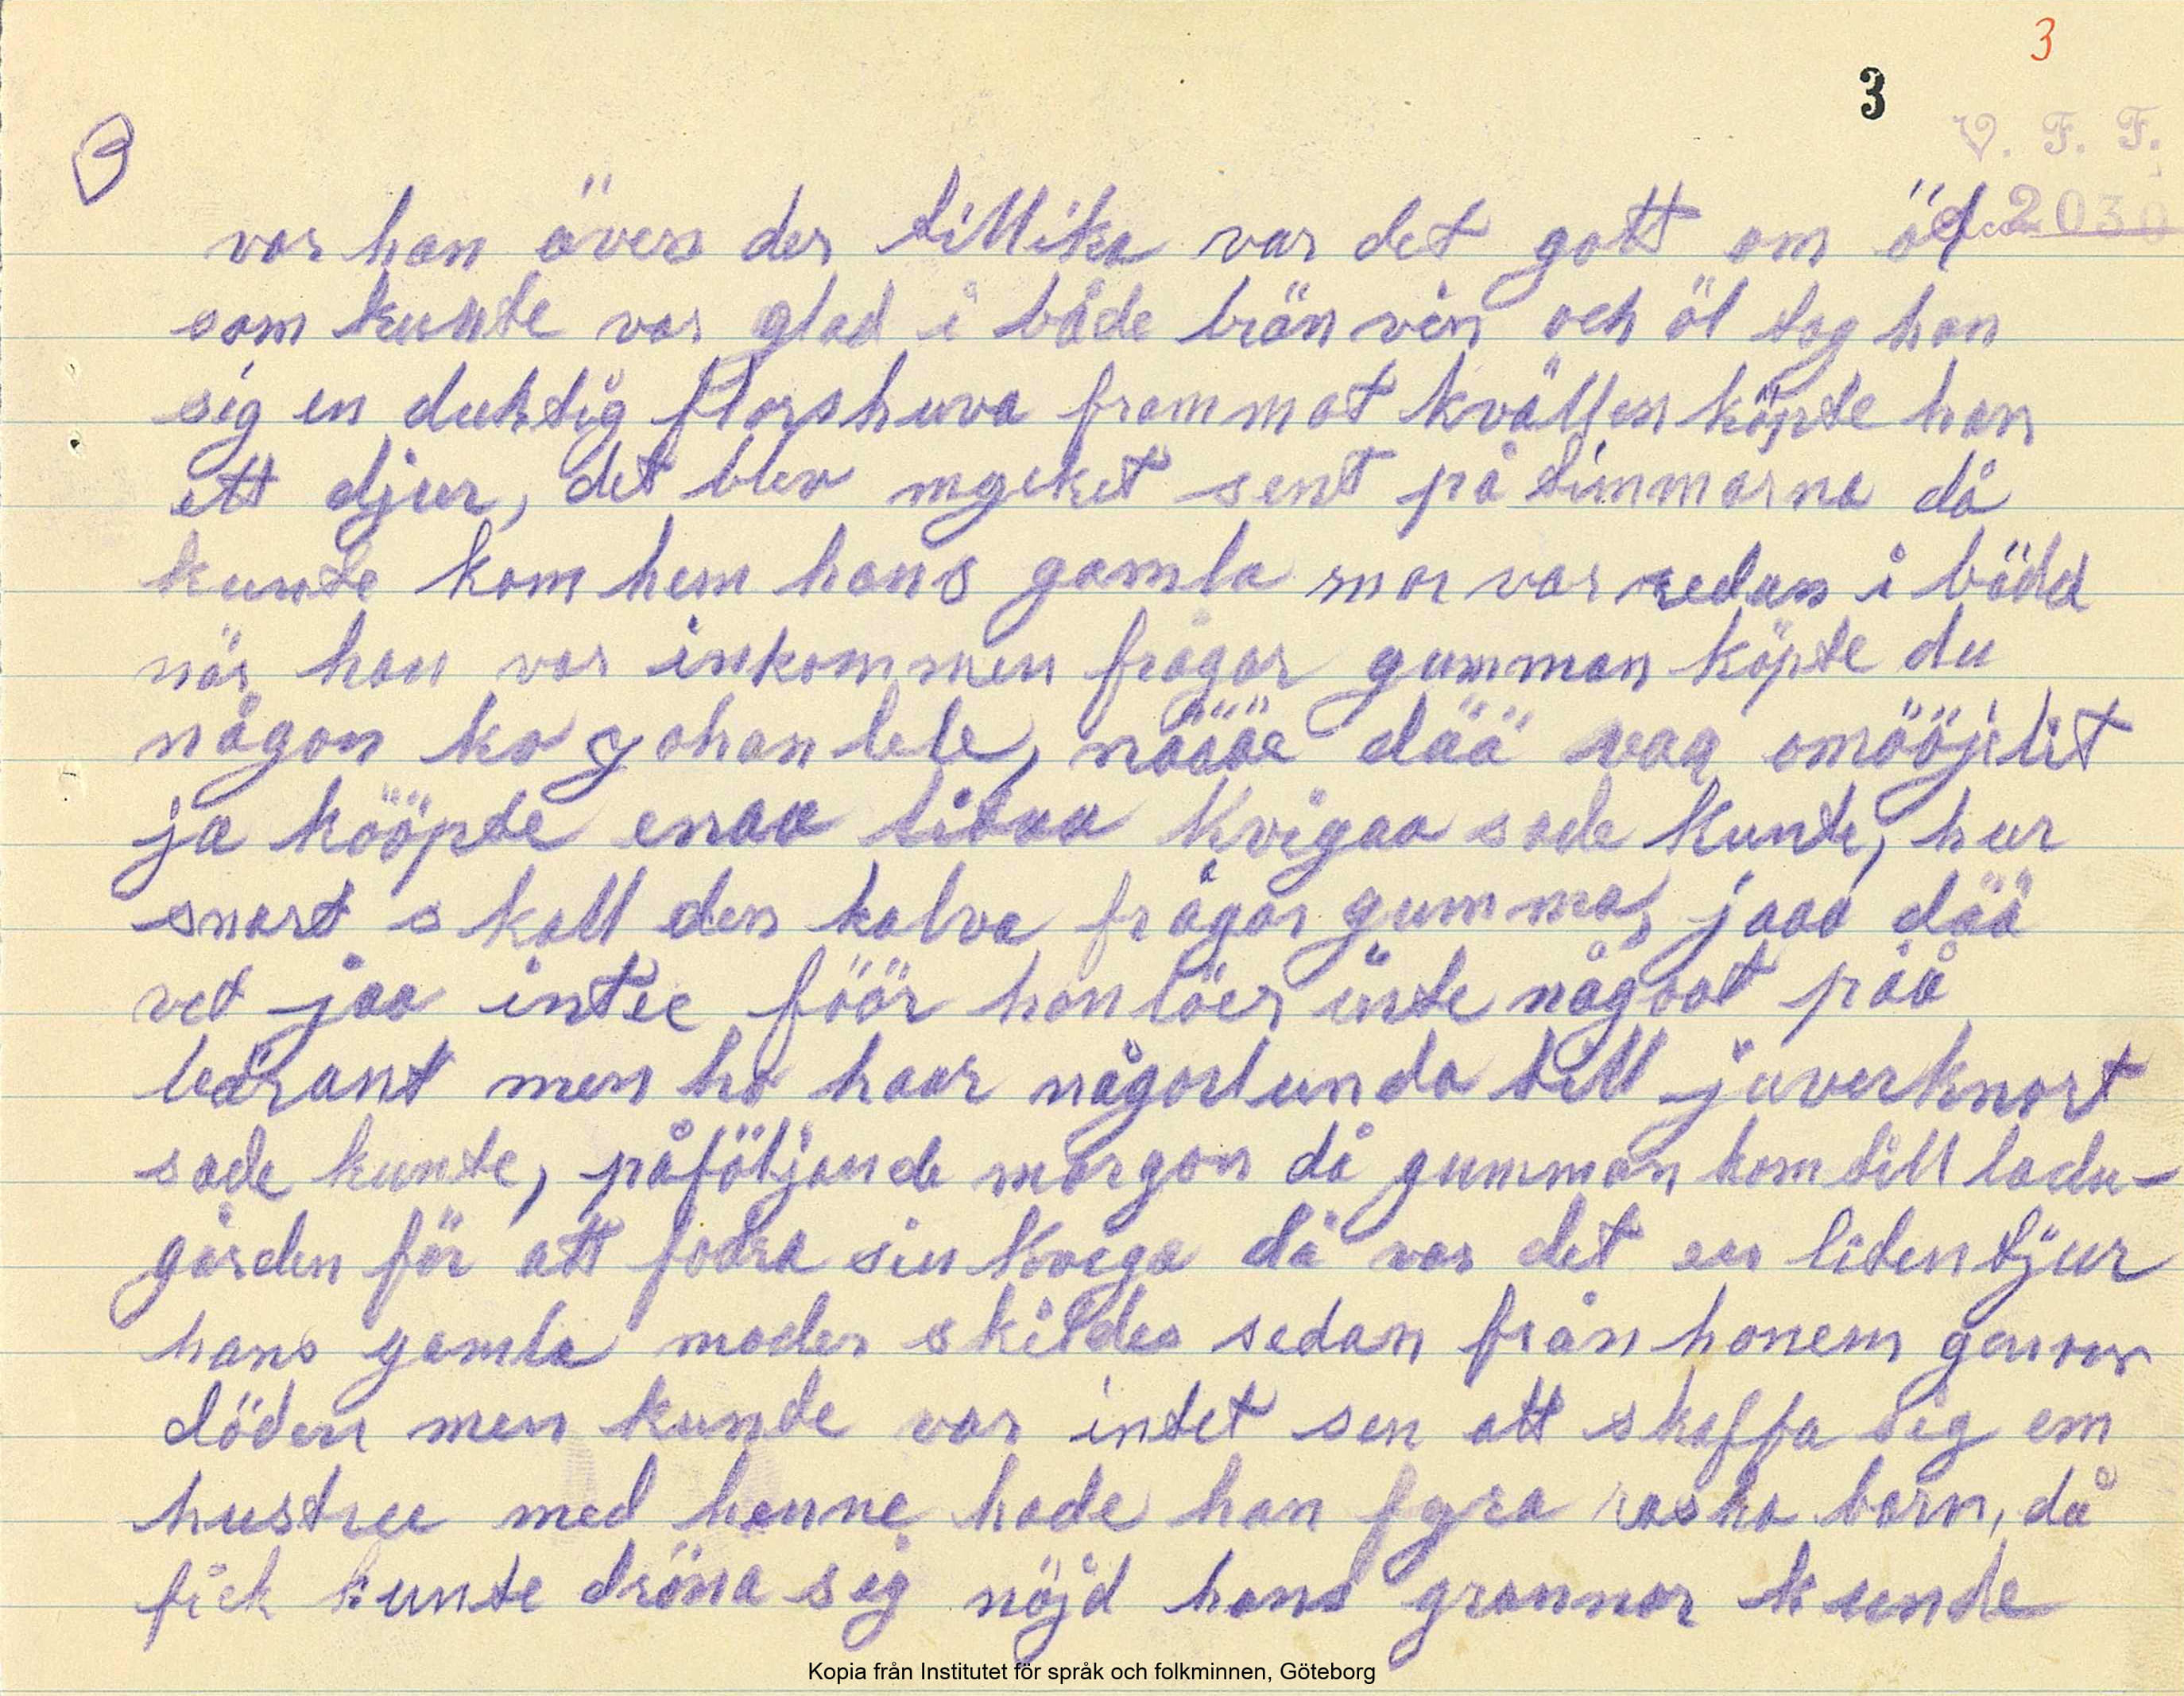 3
3
V. F. F.
2030
3
var han över der tillika var det gott om öl
som kunte var glad i både brän vin och öl tog han
sig en duktig florshuva frammot kvällen köpte han
ett djur, det blev mycket sent på timmarna då
kunte kom hem hans gamla mor var redan i bädd
när han var inkommen frågar gumman köpte du
någon ko johan lele, näääe dää vaa omööjelit
ja kööpte enaa litaa kvigaa sade kunte, hur
snart skall den kalva frågar gumman, jaaa dää
vet jaa intee föör hon löer inte någoot påå
bärant men ho haar någorlunda till juverknort
sade kunte, påföljande morgon då gumman kom till ladu-
gården för att fodra sin kviga då var det en liten tjur
hans gamla moder skildes sedan från honem genom
döden men kunde var intet sen att skaffa sig em
hustru med henne hade han fyra raska barn, då
fick kunte dröna sig nöjd hans grannar kunde
Kopia från Institutet för språk och folkminnen, Göteborg